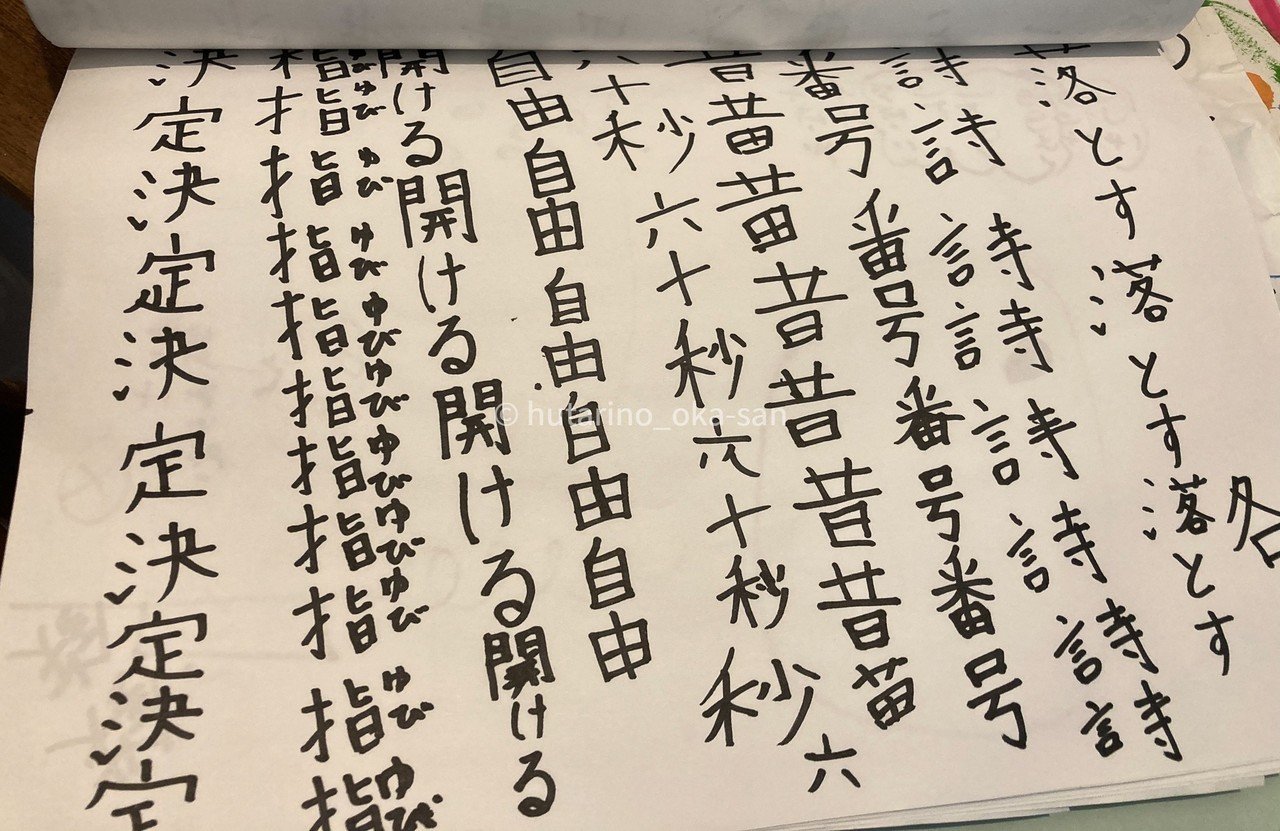 各
落とす落とす落とす
詩詩詩詩詩詩詩詩
番号番号番号番号
昔苗苗昔昔昔昔苗
六十秒六十秒六十秒秒六
自由自由自由自由自由
開ける開ける開ける開ける
ゆびゆびゆびゆびゆびゆびゆびゆびゆびゆびゆび
指指指指指指指指指指指
決定決定決定決定決定
© hutarino_oka-san